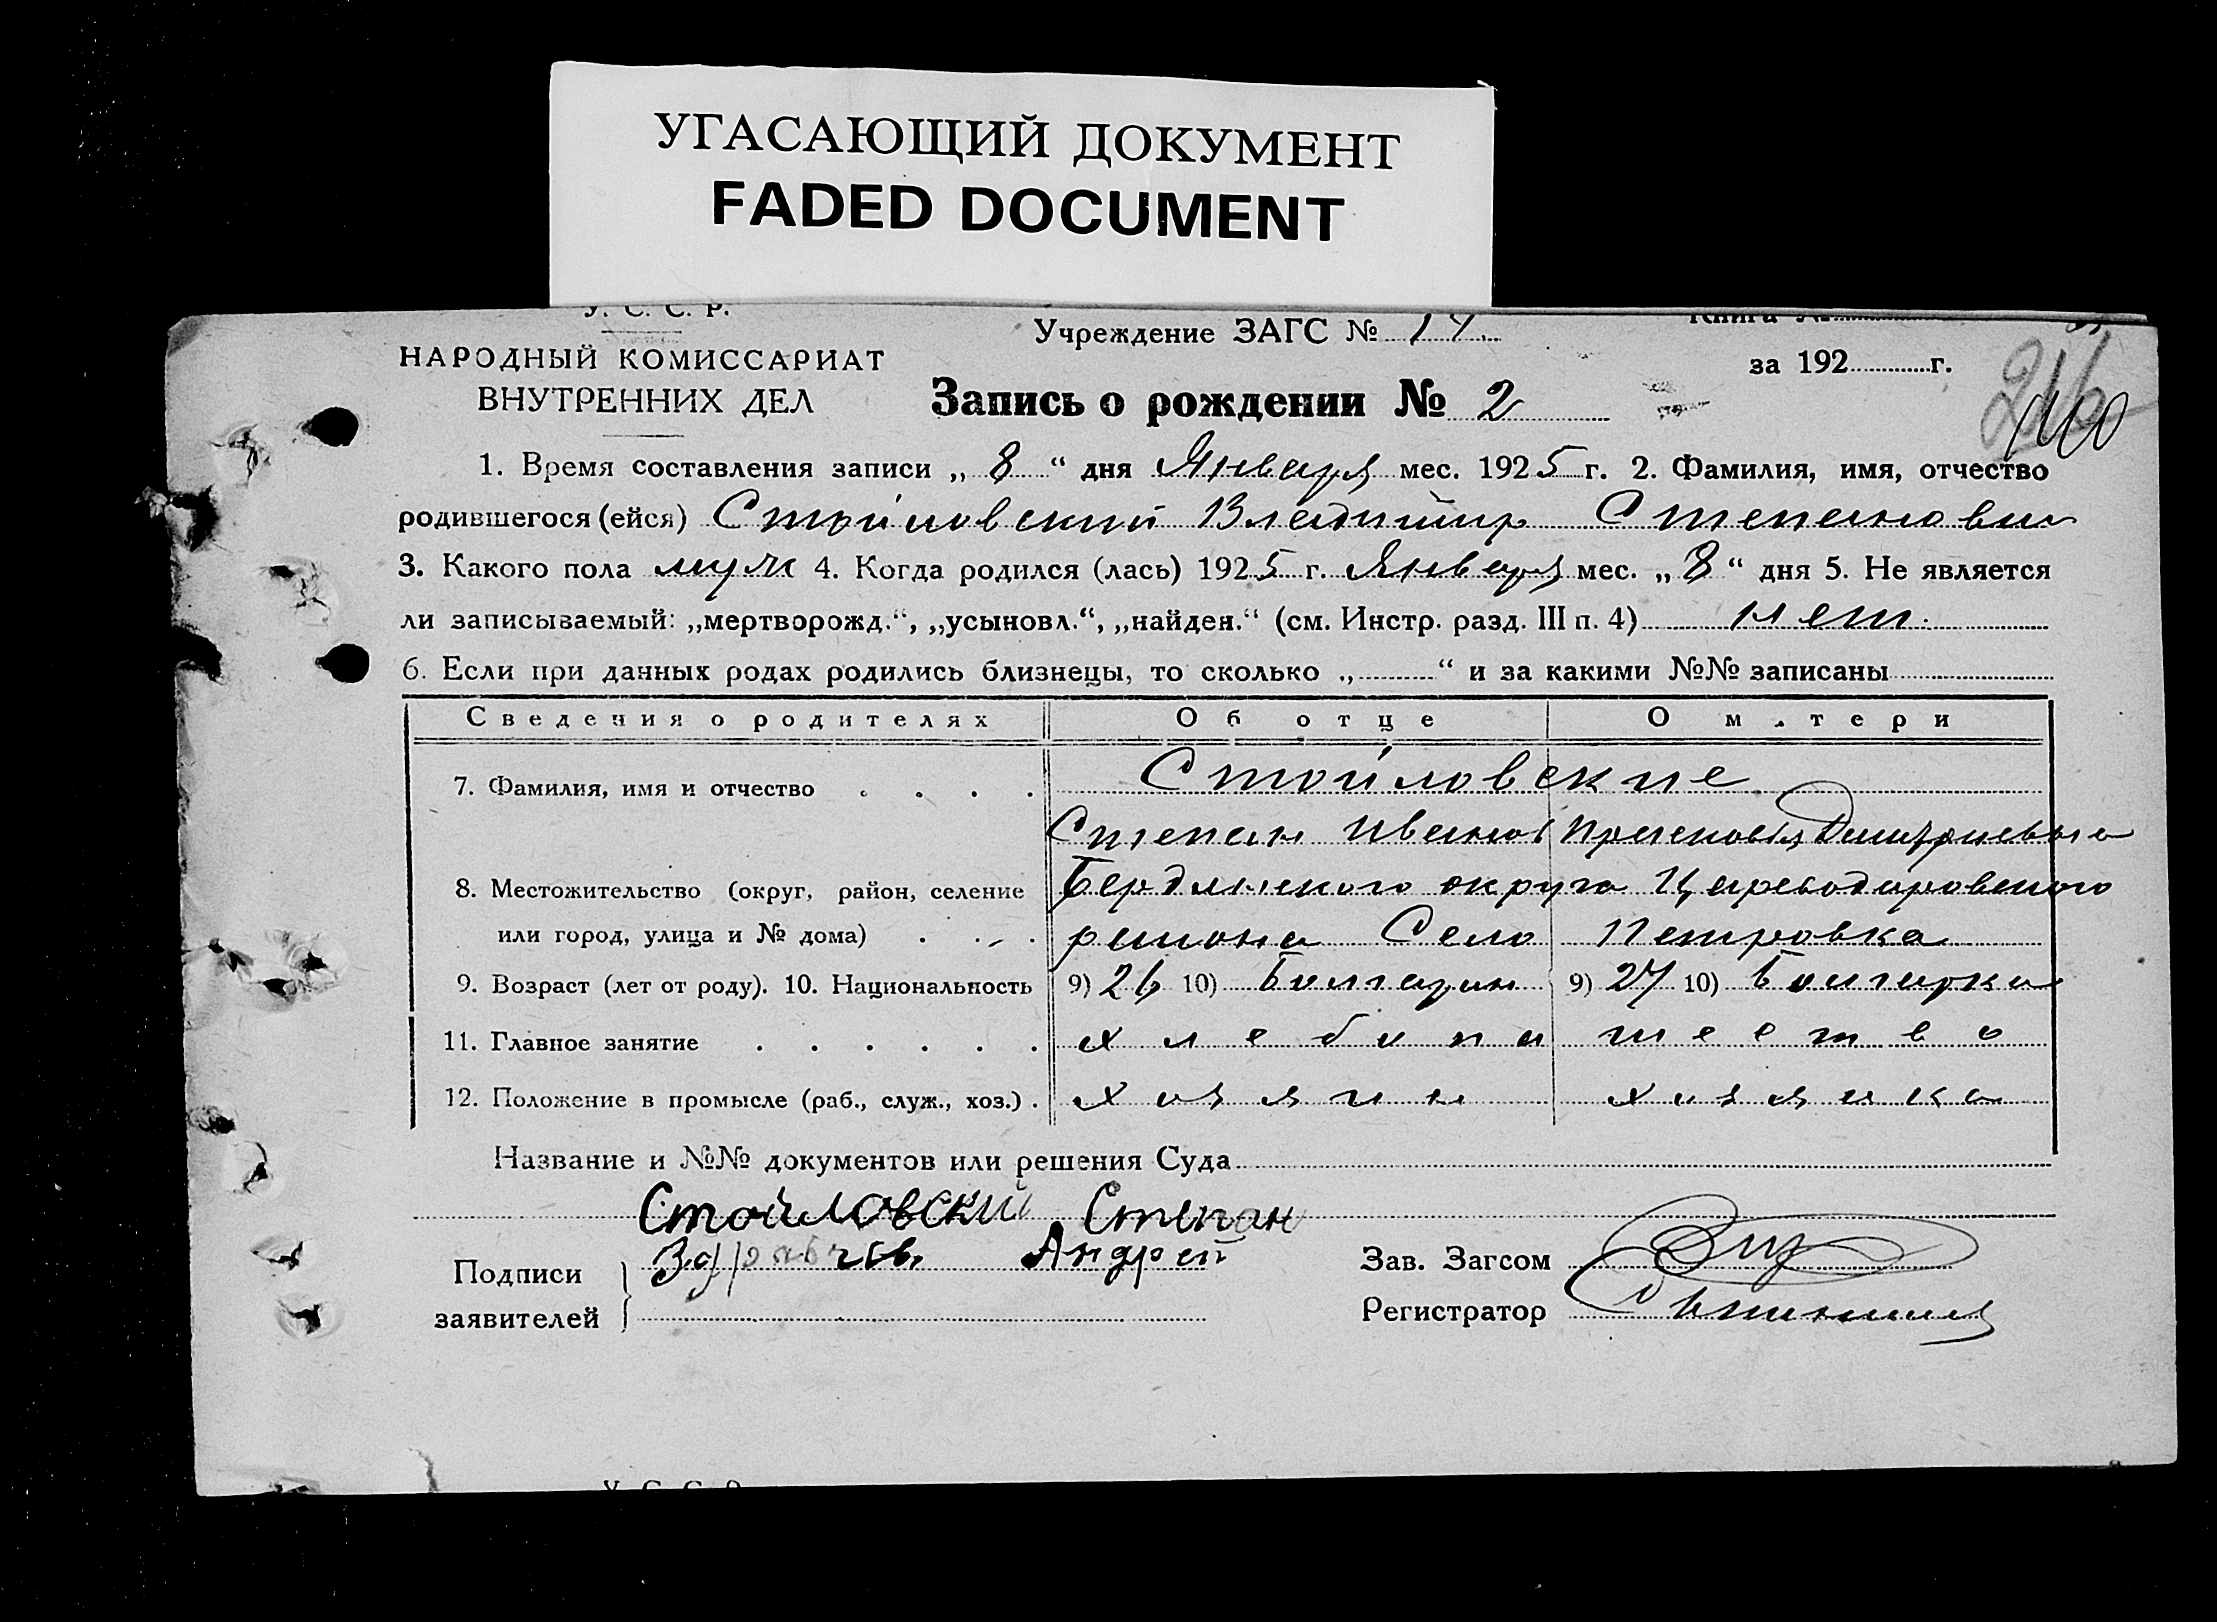 УГАСАЮЩИЙ ДОКУМЕНТ
FADED DOCUMENT
У. С. С. Р.
НАРОДНЫЙ КОМИССАРИАТ
ВНУТРЕННИХ ДЕЛ
Учреждение ЗАГС № 14
Книга №
за 192 г.
Запись о рождении № 2
1. Время составления записи „ 8 “ дня Января мес. 1925 г. 2. Фамилия, имя, отчество
родившегося (ейся) Стойловский Владимир Степанович
3. Какого пола муж 4. Когда родился (лась) 1925 г. Января мес. „ 8 “ дня 5. Не является
ли записываемый: „мертворожд.“, „усыновл.“, „найден.“ (см. Инстр. разд. III п. 4) нет.
6. Если при данных родах родились близнецы, то сколько „ “ и за какими №№ записаны
Сведения о родителях Об отце О матери
7. Фамилия, имя и отчество . . . . Стойловские
Степан Иванов Прасковья Дмитриевна
8. Местожительство (округ, район, селение Бердянского округа Цареводаровского
или город, улица и № дома) . . . района Село Петровка
9. Возраст (лет от роду). 10. Национальность 9) 26 10) Болгарин 9) 27 10) Болгарка
11. Главное занятие . . . . . . хлебопашество
12. Положение в промысле (раб., служ., хоз.) . хозяин хозяйка
Название и №№ документов или решения Суда
Стойловский Степан
Подписи
заявителей
Андрей
Зав. Загсом
Регистратор
У. С. С. Р.